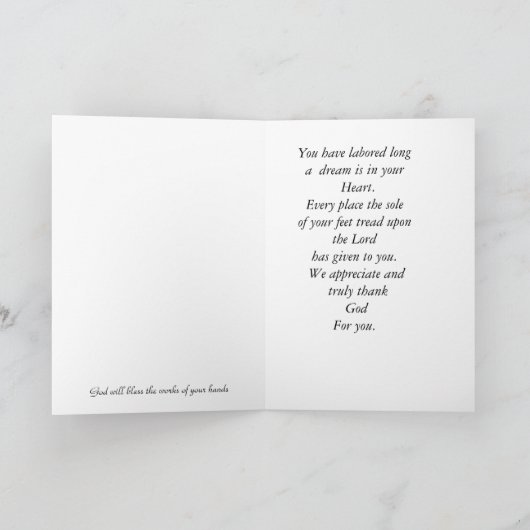 God will bless the works of your hands
You have labored long
a dream is in your
Heart.
Every place the sole
of your feet tread upon
the Lord
has given to you.
We appreciate and
truly thank
God
For you.